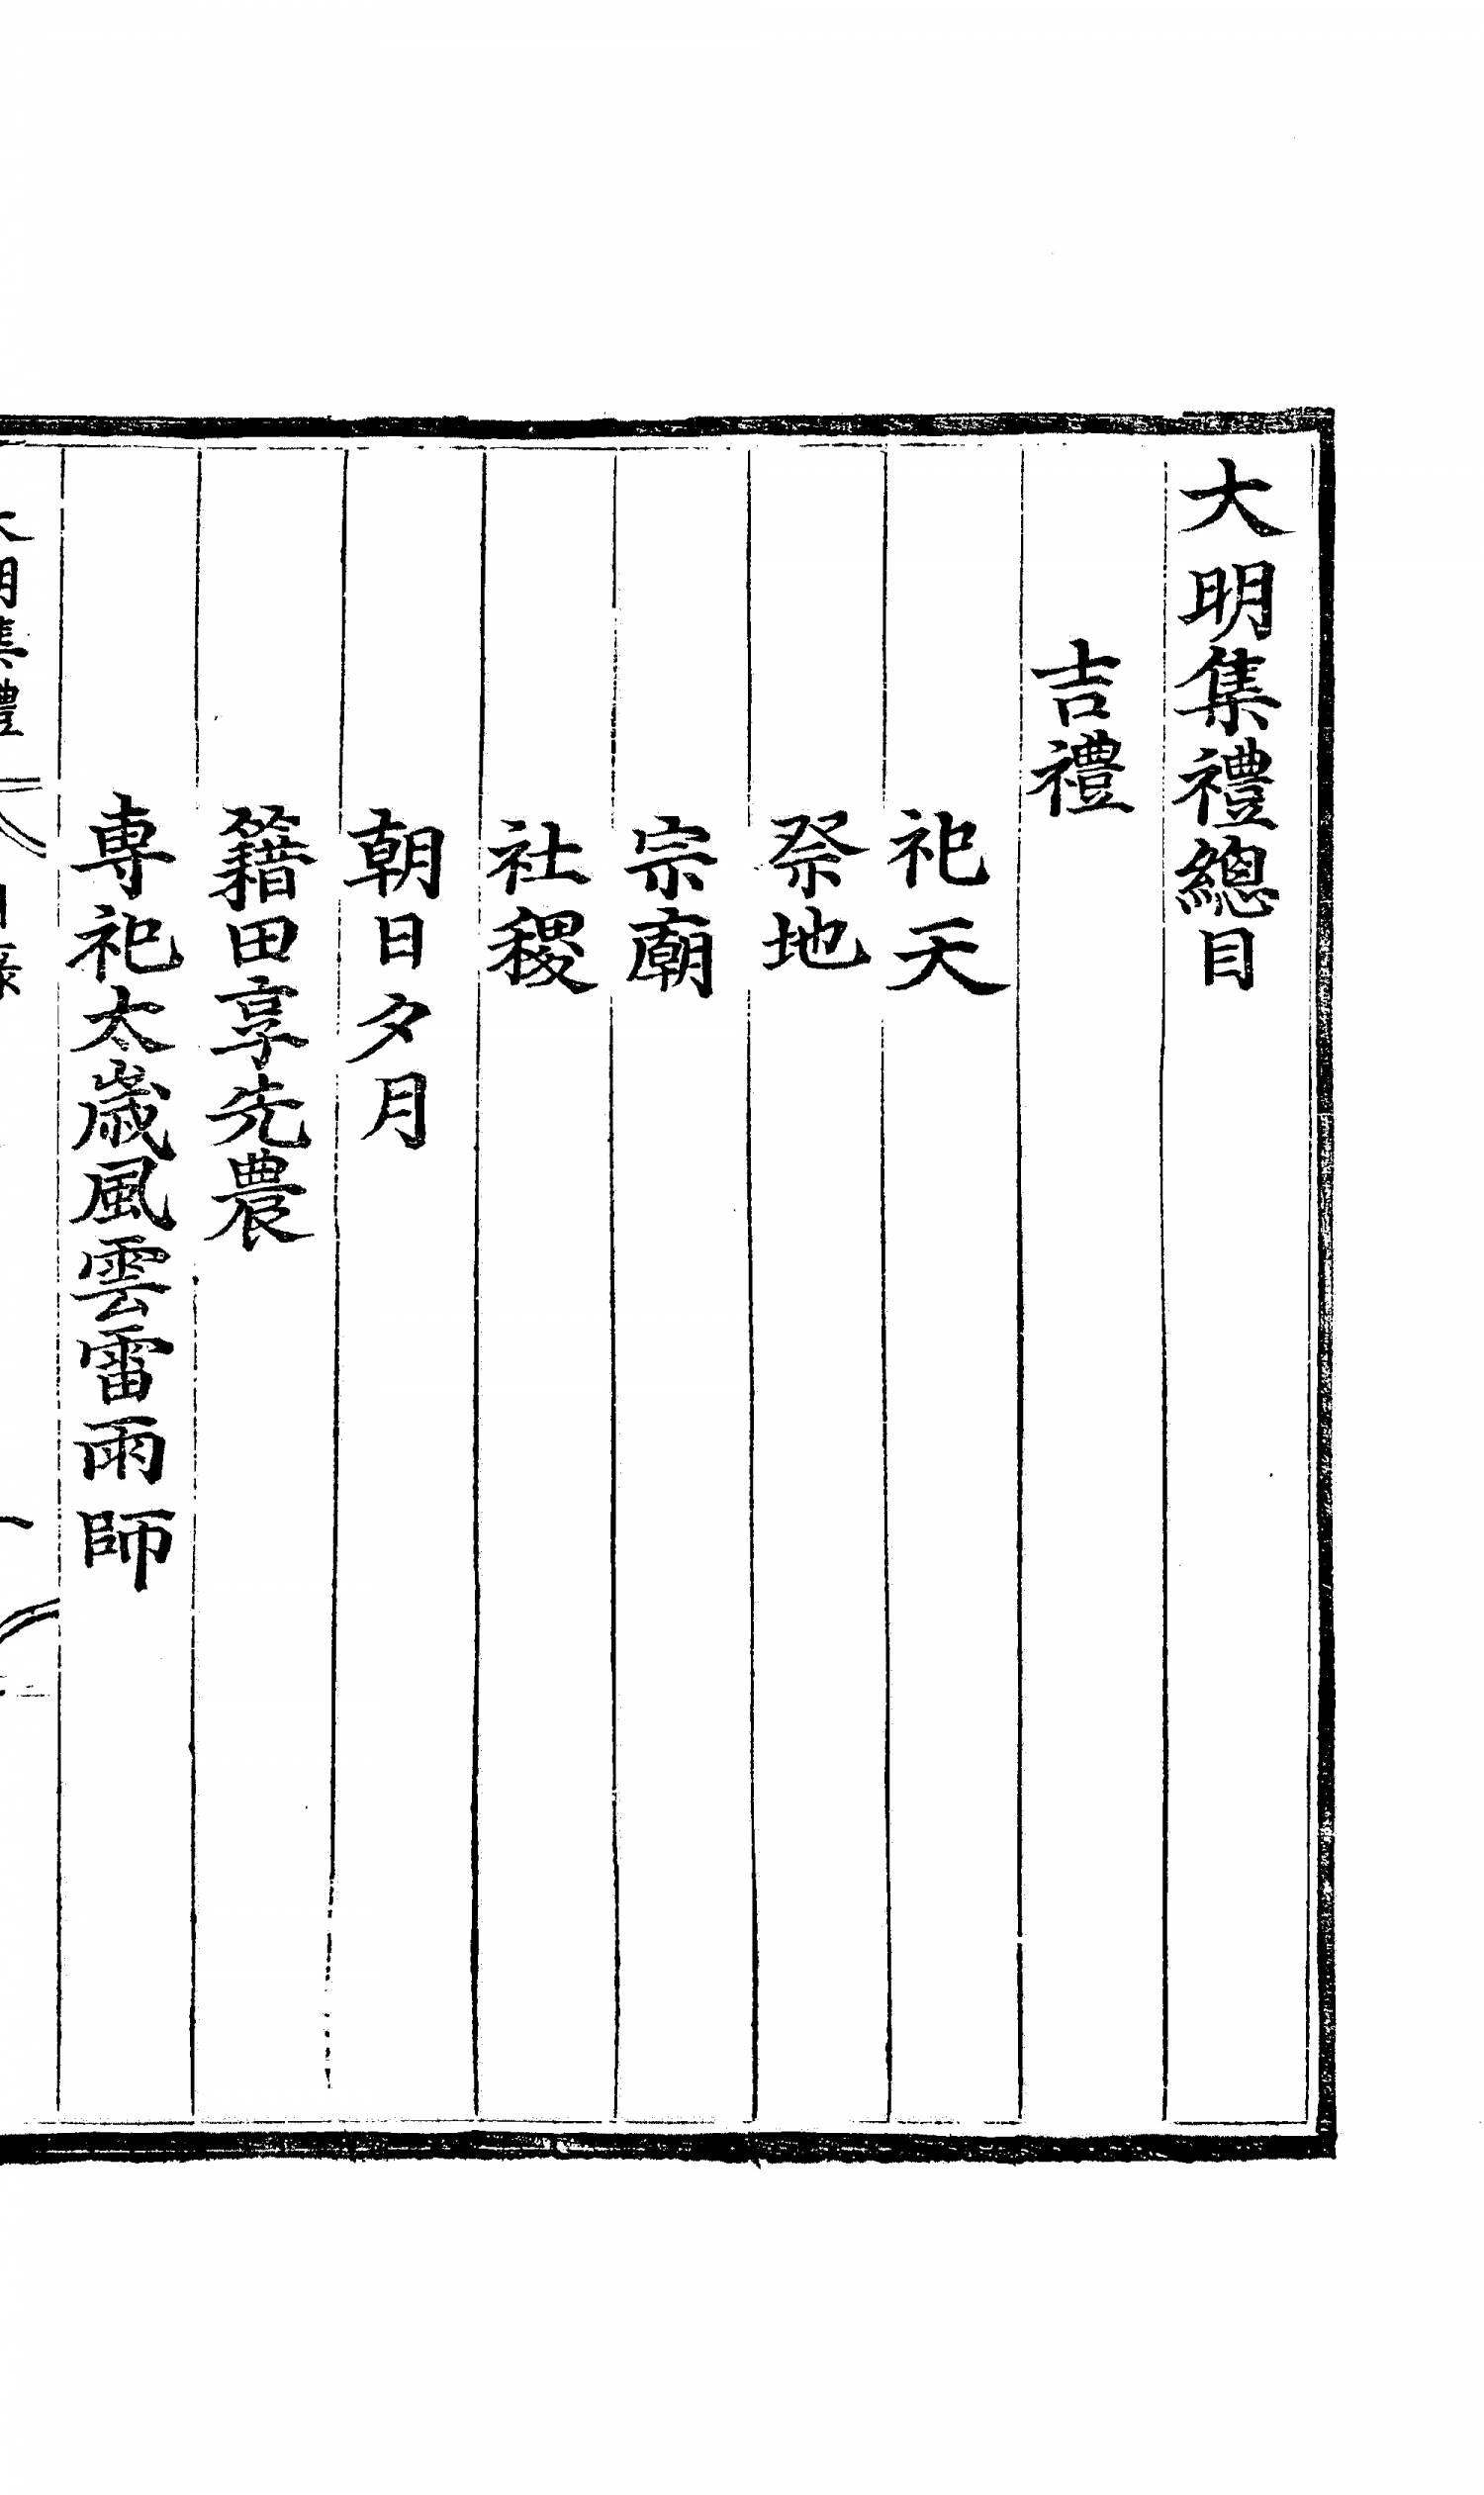 大明集禮總目
吉禮
祀天
祭地
宗廟
社稷
朝日夕月
籍田享先農
專祀太歲風雲雷雨師